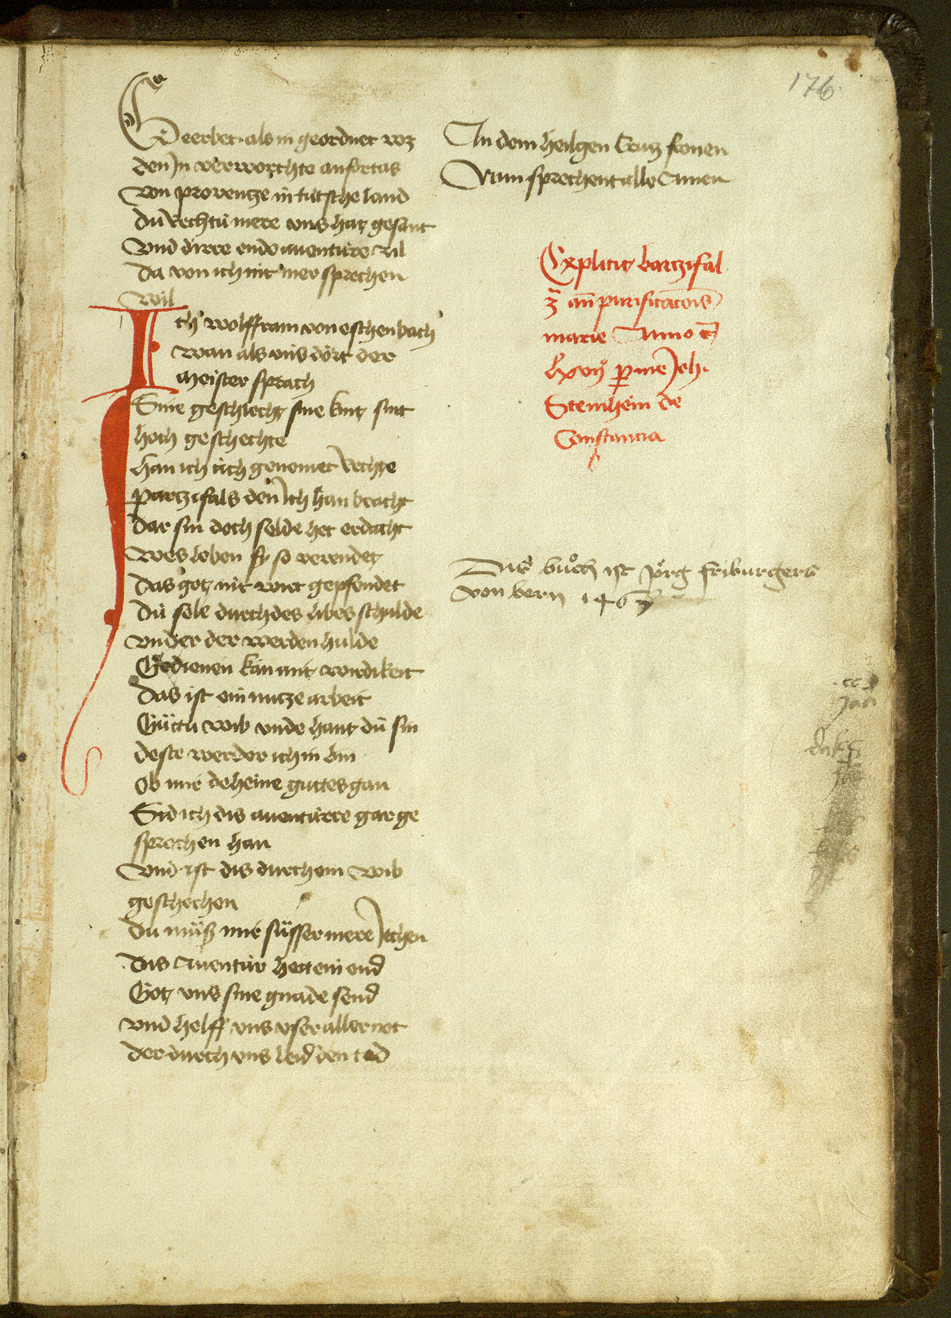 176
Geerbet als in geordnet wz
den in verworchte anfortas
von provenze in tütsche land
Dú rechtú mere uns hat gesant
Und dirre ende aventúre zil
Da von ich nit mer sprechen
wil
Ich wolffram von eschenbach
wan als uns dört der
meister sprach
Sine geschlecht sine kint sint
hoch geschechte
Han ich úch genemet rechte
partzifals den ich han bracht
Dar sin doch selde het erdacht
wes leben sy so verendet
Das got nit wirt gepfendet
Dú sele durch des libes schulde
und er der werden hulde
Gedienen kan mit wirdikeit
Das ist ein nutze arbeit
Gúttú wib unde hant dú sin
deste werder ich in bin
Ob mir deheine guttes gan
Sid ich dis aventúre gar ge
sprochen han
und ist dis durch ein wib
geschechen
Dú mús mir süsser mere jechen
Dis Aventúr hett ein end
Got uns sine gnade send
und helff uns usser aller not
der durch uns leid den tod
An dem heilgen Crútz fronen
Nun sprechent alle Amen
Explicit bartzifal
z̄ añ purificacōis
marie Anno
lxvij p me Joh.
Stemhein de
Constancia
Dis bůch ist Jörg friburgers
von bern 1467